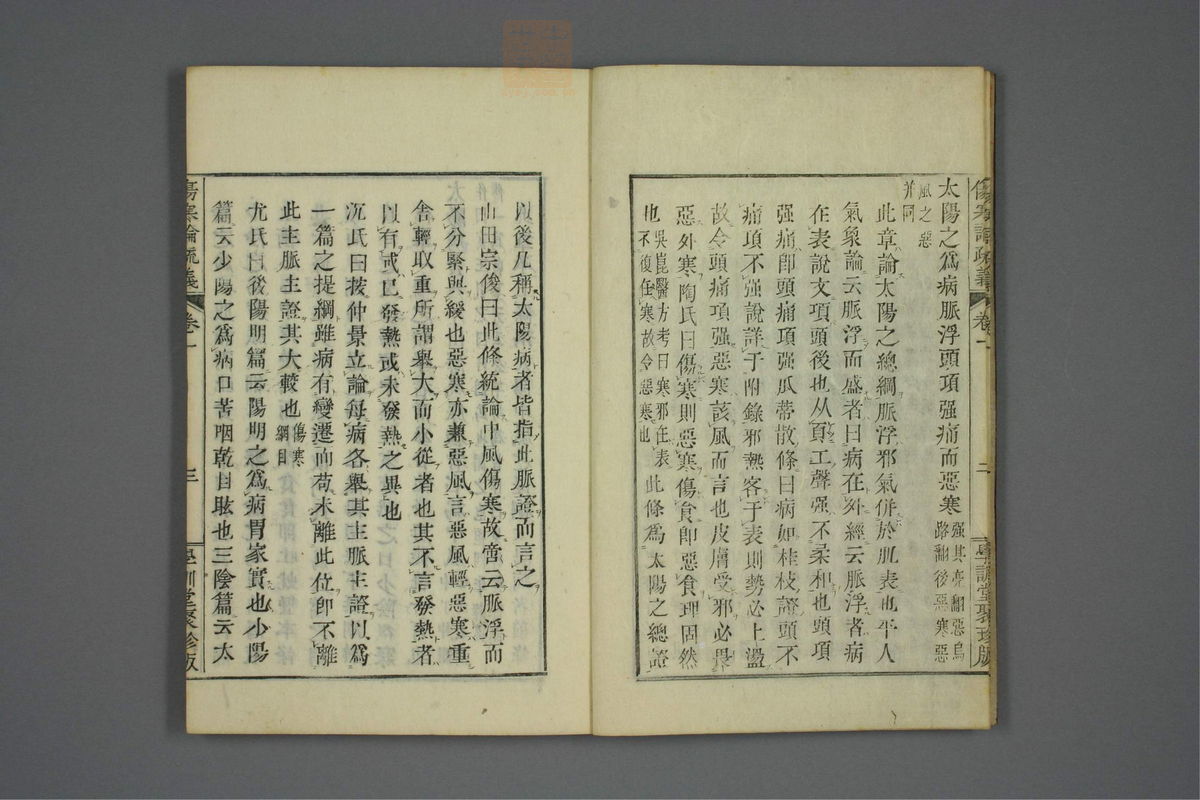 傷寒論疏義 卷一 二 學訓堂聚珍版
太陽之爲病脈浮頭項强痛而惡寒强其亮翻惡烏路翻後惡寒惡
風之惡并同
此章論太陽之總綱脈浮邪氣併於肌表也平人
氣象論云脈浮而盛者曰病在外經云脈浮者病
在表說文項頭後也从頁工聲强不柔和也頭項
强痛卽頭痛項强瓜蒂散條曰病如桂枝證頭不
痛項不强說詳于附錄邪熱客于表則勢必上盪
故令頭痛項强惡寒該風而言也皮膚受邪必畏
惡外寒陶氏曰傷寒則惡寒傷食卽惡食理固然
也吳崑醫方考曰寒邪在表不復任寒故令惡寒也此條爲太陽之總證
以後凡稱太陽病者皆指此脈證而言之
山田宗俊曰此條統論中風傷寒故啻云脈浮而
不分緊與緩也惡寒亦兼惡風言惡風輕惡寒重
舍輕取重所謂舉大而小從者也其不言發熱者
以有或已發熱或未發熱之異也
沉氏曰按仲景立論每病各舉其主脈主證以爲
一篇之提綱雖病有變遷而苟未離此位卽不離
此主脈主證其大較也傷寒綱目
尤氏曰後陽明篇云陽明之爲病胃家實也少陽
篇云少陽之爲病口苦咽乾目眩也三陰篇云太
傷寒論疏義 卷一 三 學訓堂聚珍版